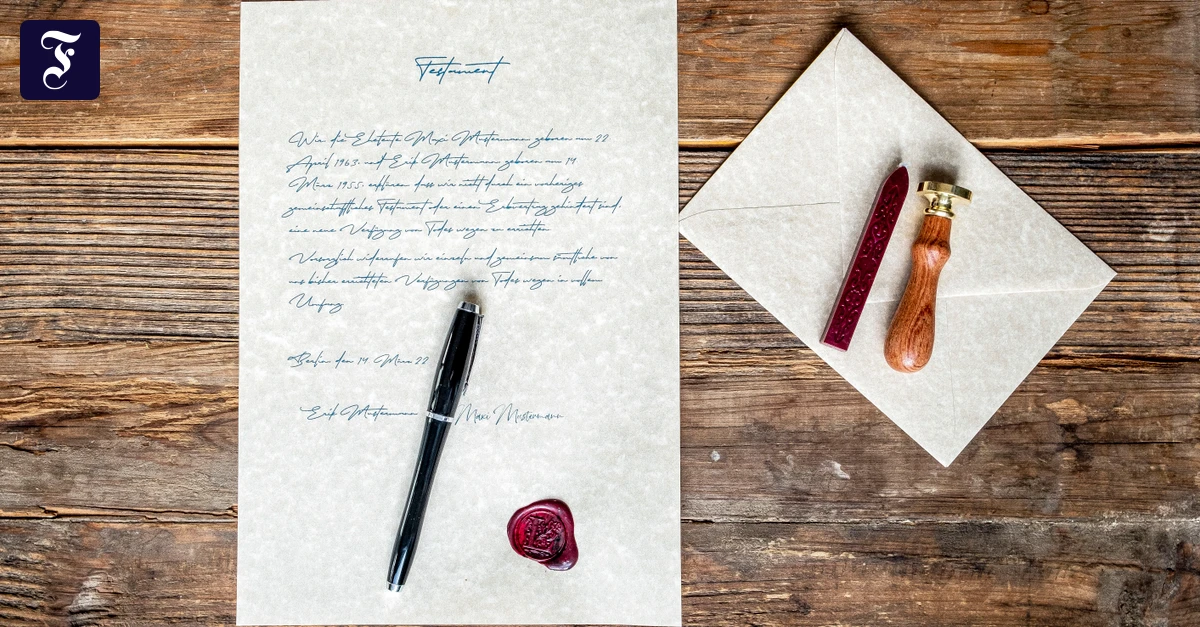 F
Testament
Wir die Eheleute Maxi Mustermann geboren am 22
April 1963. und Erik Mustermann geboren am 14
März 1955. erklären dass wir nicht durch ein vorheriges
gemeinschaftliches Testament oder einen Erbvertrag gehindert sind,
eine neue Verfügung von Todes wegen zu errichten
Vorsorglich widerrufen wir einzeln und gemeinsam sämtliche von
uns bisher errichteten Verfügungen von Todes wegen in vollem
Umfang
Berlin den 14. März 22
Erik Mustermann Maxi Mustermann